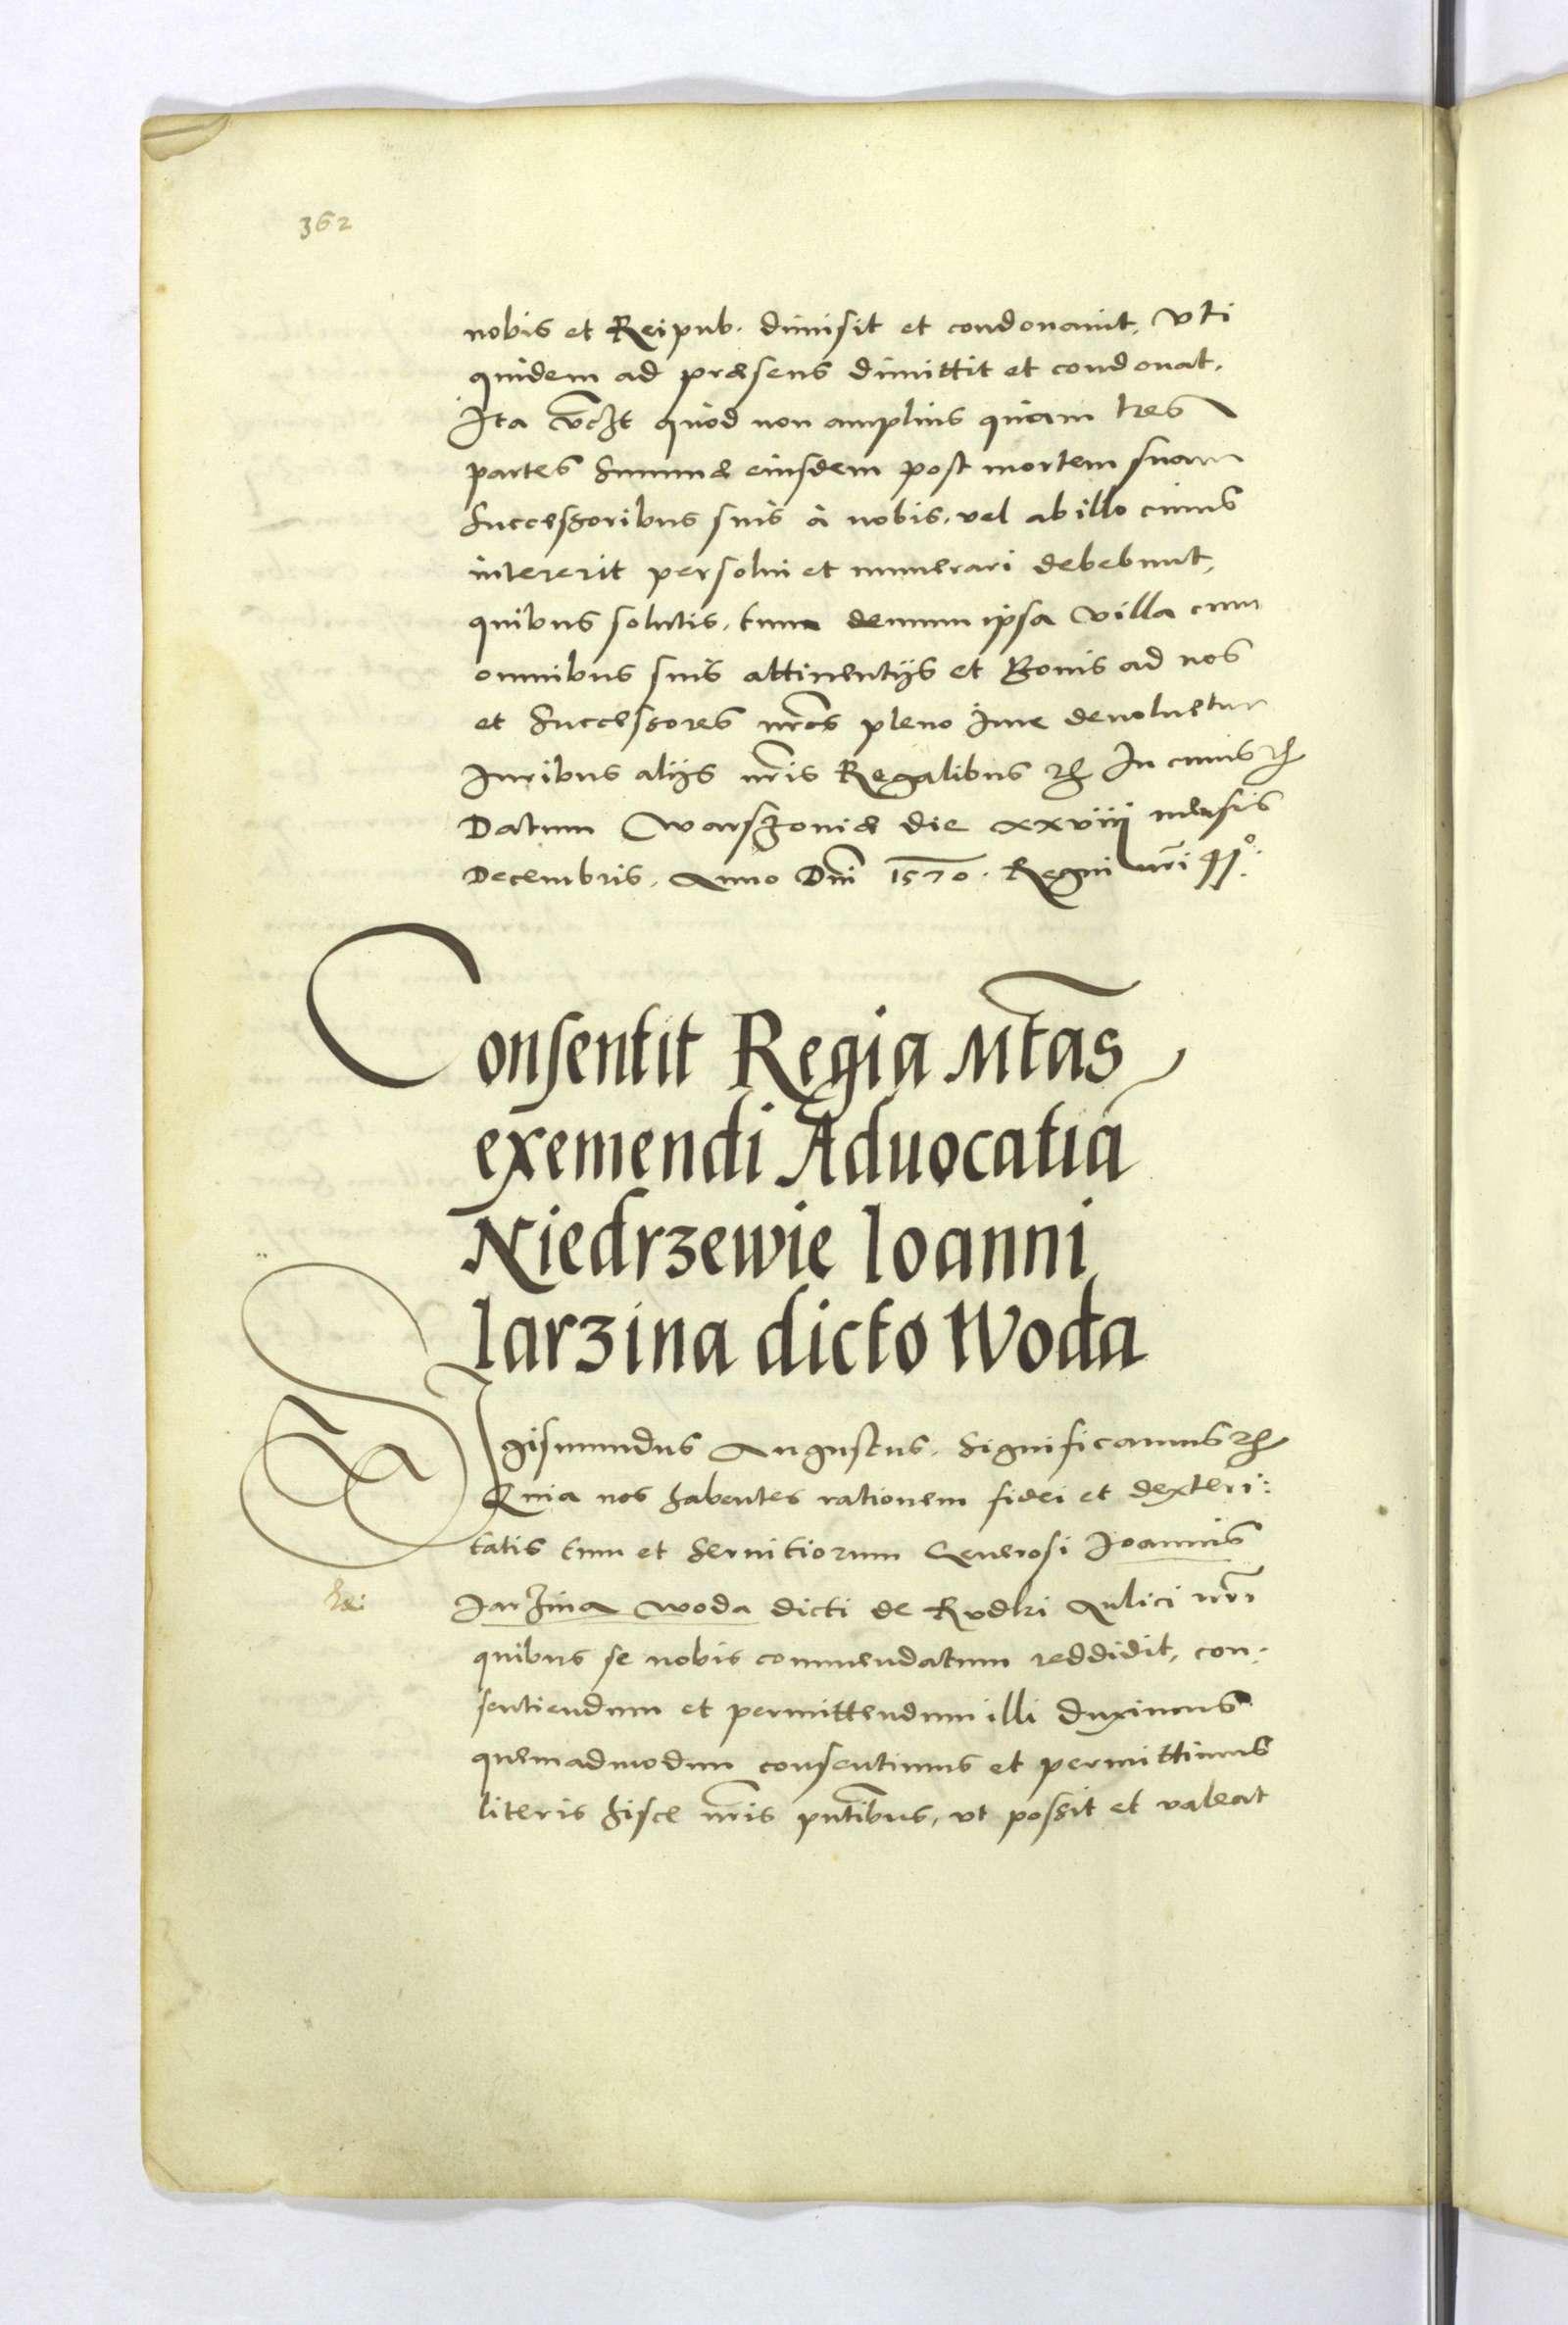 362
nobis et Reipub. dimisit et condonauit, vti
quidem ad præsens dimittit et condonat.
Ita vt quod non amplius quam tres
partes summæ eiusdem post mortem suam
successoribus suis à nobis, vel ab illo cuius
intererit persolui et numerari debebunt,
quibus solutis, tum demum ipsa villa cum
omnibus suis attinentijs et Bonis ad nos
et successores nros pleno iure deuoluetur
Iuribus alijs nris Regalibus etc In cuius etc
Datum Warszouiæ die xxviij mensis
Decembris. Anno Dni 1570. Regni nri 41°.
Consentit Regia Mtas
exemendi Aduocatiā
Niedrzewie Ioanni
Iarzina dicto Woda
Sigismundus Augustus. Significamus etc
Quia nos habentes rationem fidei et dexteri:
tatis tum et seruitiorum Generosi Joannis
Jarzina Woda dicti de Rudki Aulici nri
quibus se nobis commendatum reddidit, con:
sentiendum et permittendum illi duximus
quemadmodum consentimus et permittimus
literis hisce nris pntibus, vt possit et valeat